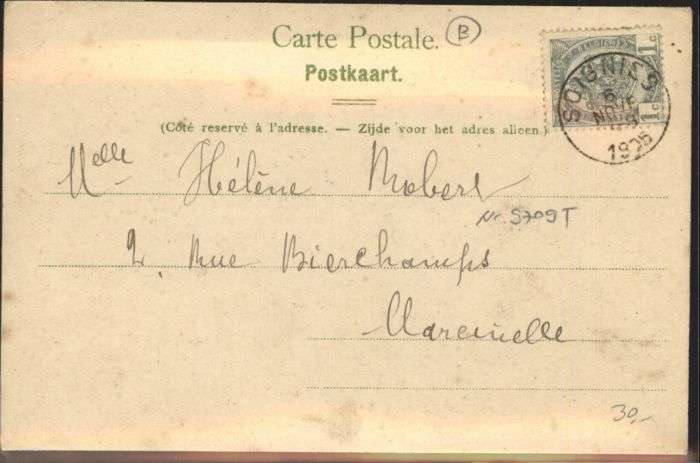 Carte Postale.
B
Postkaart.
(Côté reservé à l'adresse. — Zijde voor het adres alleen.)
1c
1c
SOIGNIES
6
NOVE
1905
Melle Hélène Robert
Nr 5709T
2, Rue Bierchamps
Marcinelle
30,-